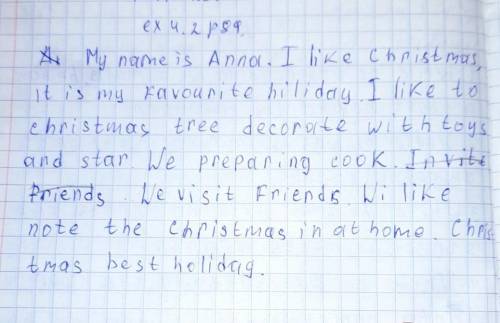 ex 4.2 p59.
My name is Anna. I like christmas,
it is my favourite hiliday. I like to
christmas tree decorate with toys
and star. We preparing cook. Invite
friends. We visit Friends. Wi like
note the christmas in at home. Chris
tmas best holidag.